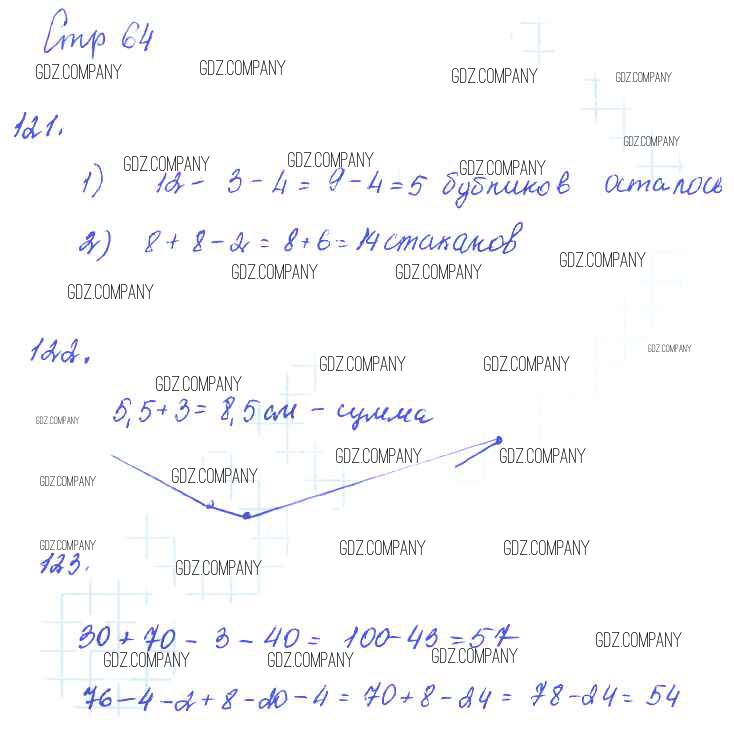 Стр 64
GDZ.COMPANY GDZ.COMPANY GDZ.COMPANY GDZ.COMPANY
121.
GDZ.COMPANY
GDZ.COMPANY GDZ.COMPANY GDZ.COMPANY
1) 12 - 3 - 4 = 9 - 4 = 5 бубликов осталось
2) 8 + 8 - 2 = 8 + 6 = 14 стаканов
GDZ.COMPANY GDZ.COMPANY GDZ.COMPANY
GDZ.COMPANY
122.
GDZ.COMPANY
GDZ.COMPANY GDZ.COMPANY
GDZ.COMPANY
5,5 + 3 = 8,5 см - сумма
GDZ.COMPANY
GDZ.COMPANY GDZ.COMPANY
GDZ.COMPANY GDZ.COMPANY
GDZ.COMPANY GDZ.COMPANY GDZ.COMPANY
123.
GDZ.COMPANY
30 + 70 - 3 - 40 = 100 - 43 = 57
GDZ.COMPANY
GDZ.COMPANY GDZ.COMPANY GDZ.COMPANY
76 - 4 - 2 + 8 - 20 - 4 = 70 + 8 - 24 = 78 - 24 = 54